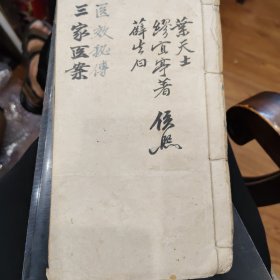 葉天士
繆宜亭著
薛生白
医效秘傳
三家医案